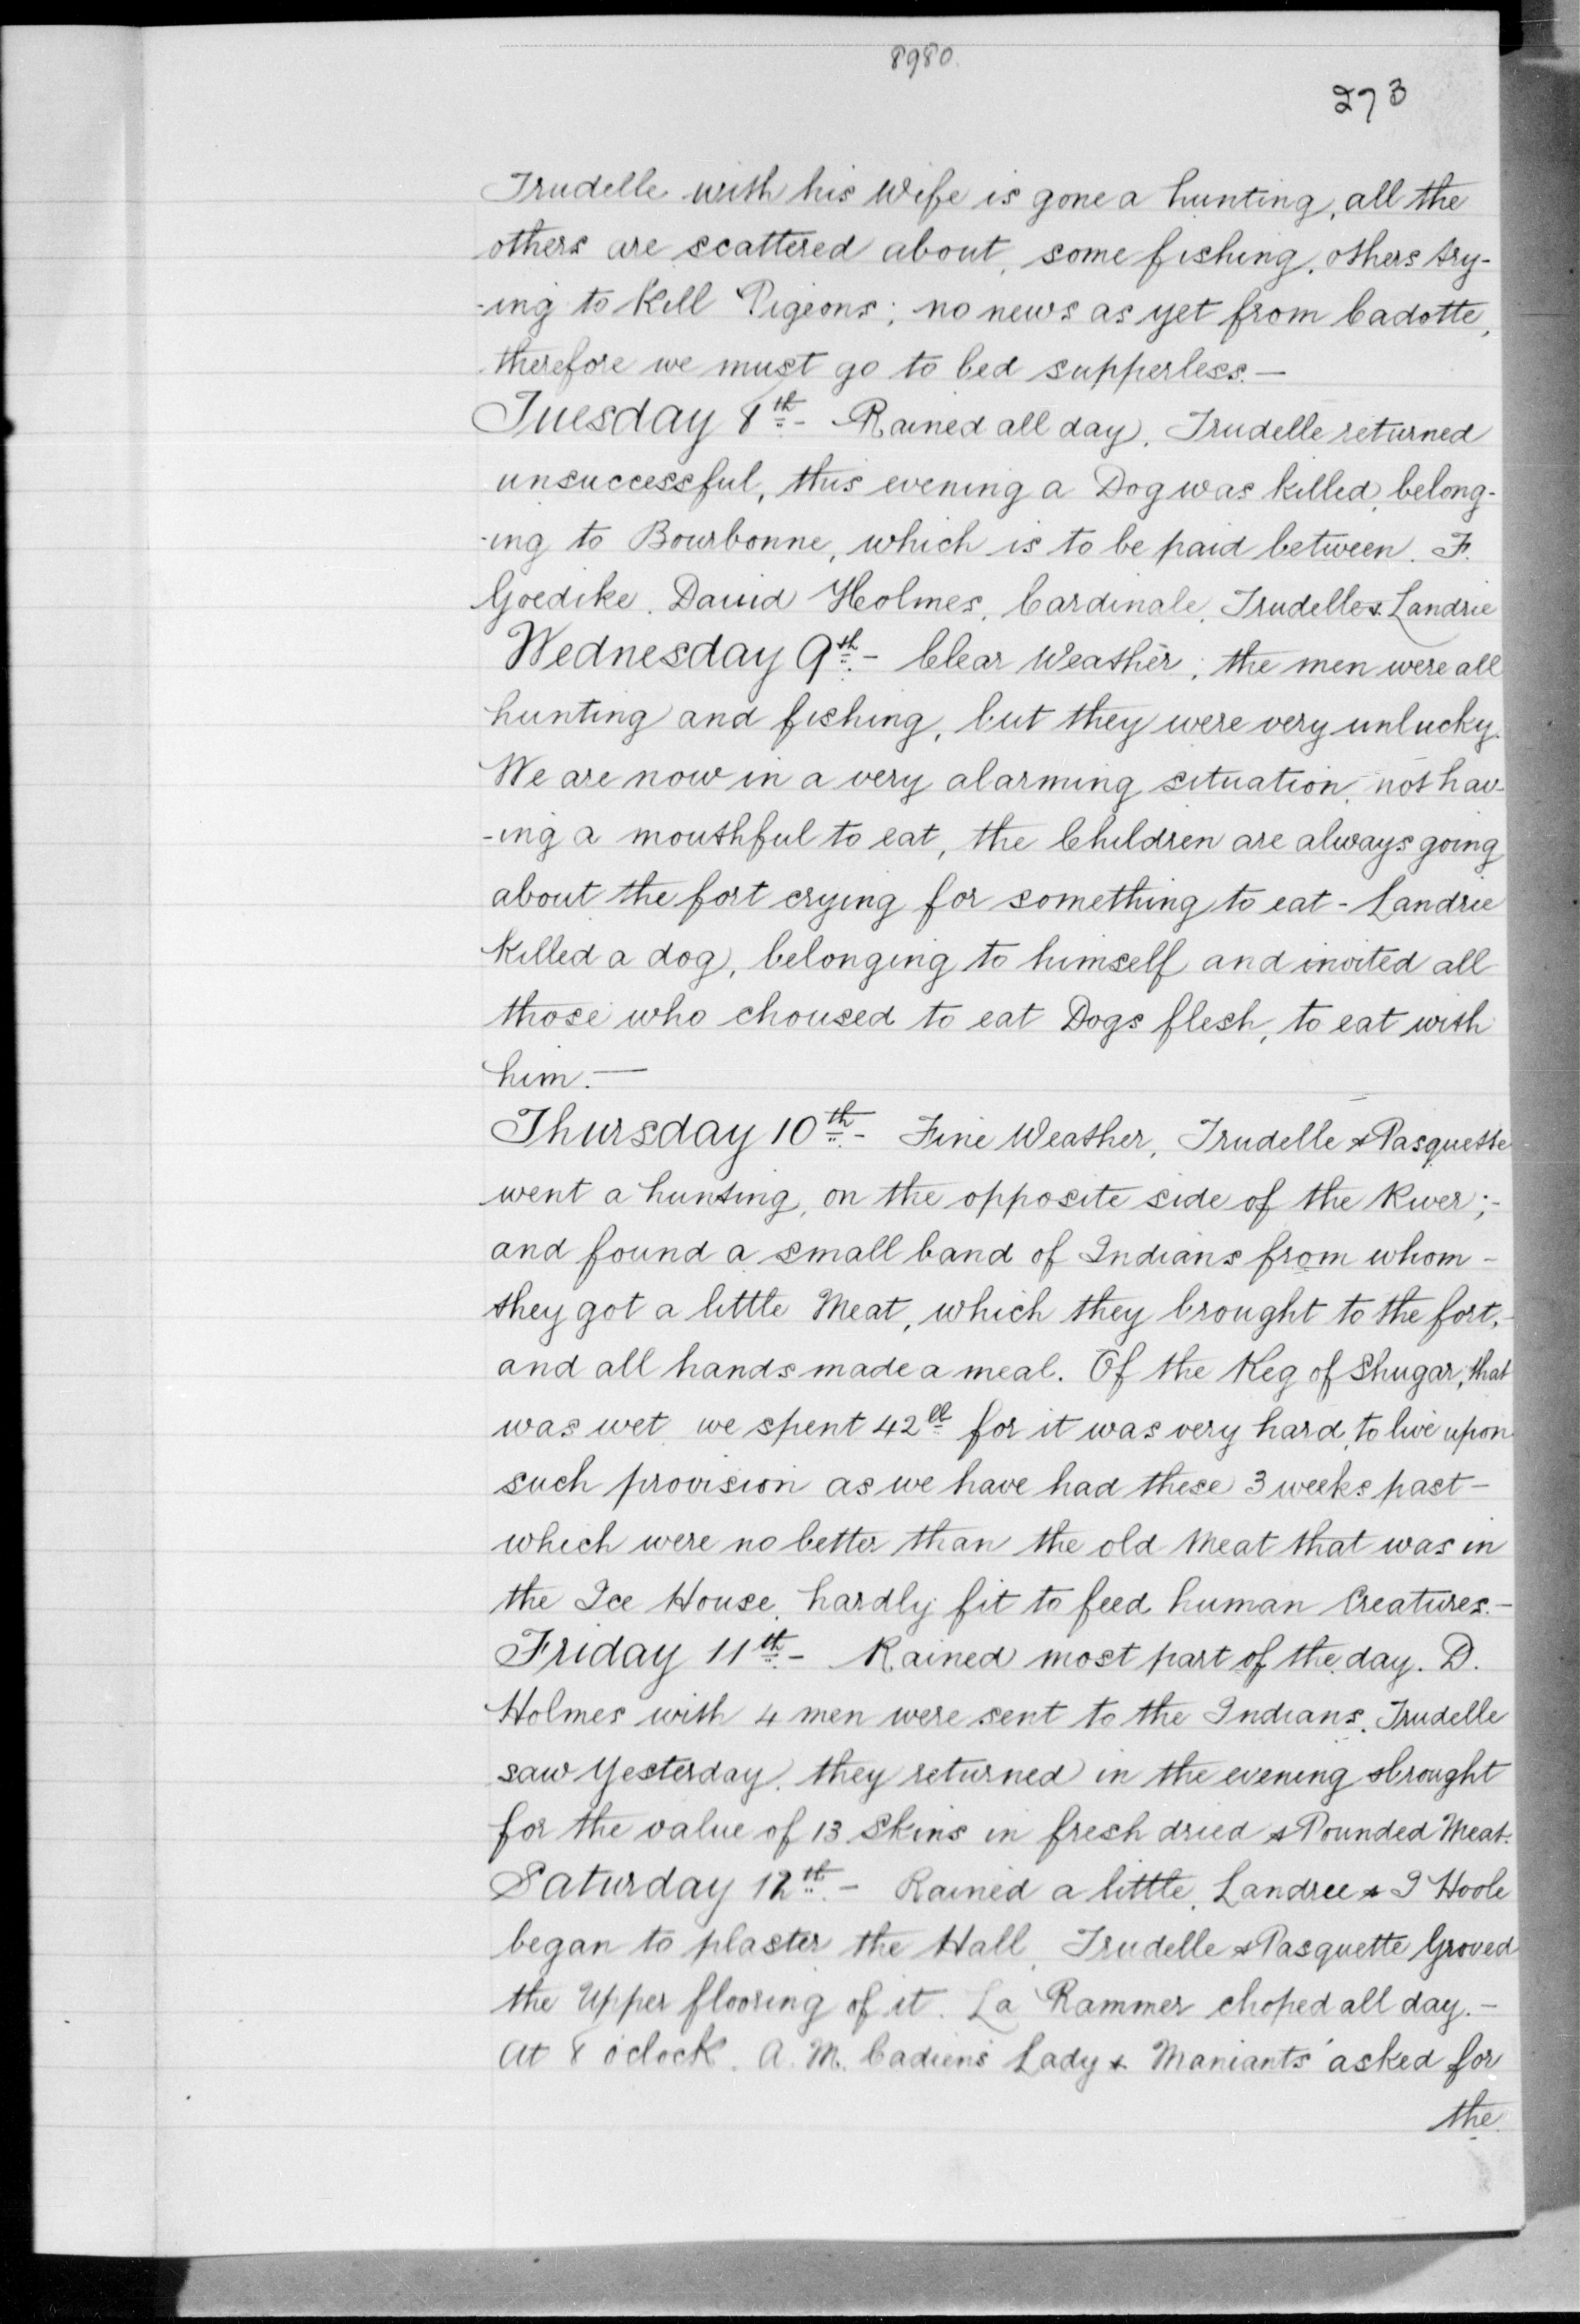 8980.
273
Trudelle with his Wife is gone a hunting, all the
others are scattered about, some fishing, others try-
-ing to Kill Pigeons; no news as yet from Cadotte,
therefore we must go to bed supperless.—
Tuesday 8th.- Rained all day, Trudelle returned
unsuccessful, this evening a Dog was killed, belong-
-ing to Bourbonne, which is to be paid between. F.
Goedike. David Holmes, Cardinale, Trudelle & Landrie
Wednesday 9th.- Clear Weather; the men were all
hunting and fishing, but they were very unlucky.
We are now in a very alarming situation, not hav-
-ing a mouthful to eat, the Children are always going
about the fort crying for something to eat - Landrie
Killed a dog, belonging to himself and invited all
those who choused to eat Dogs flesh, to eat with
him.—
Thursday 10th.- Fine Weather, Trudelle & Pasquette
went a hunting, on the opposite side of the River;-
and found a small band of Indians from whom -
they got a little Meat, which they brought to the fort,-
and all hands made a meal. Of the Keg of Shugar, that
was wet we spent 42 lb for it was very hard, to live upon
such provision as we have had these 3 weeks past -
which were no better than the old Meat that was in
the Ice House, hardly fit to feed human Creatures.-
Friday 11th.- Rained most part of the day. D.
Holmes with 4 men were sent to the Indians, Trudelle
saw Yesterday, they returned in the evening & brought
for the value of 13 Skins in fresh dried & Pounded Meat.
Saturday 12th.- Rained a little, Landree & I Hoole
began to plaster the Hall, Trudelle & Pasquette Groved
the Upper flooring of it. La Rammer choped all day.-
At 8 o'clock. A.M. Cadiens Lady & Maniants' asked for
the